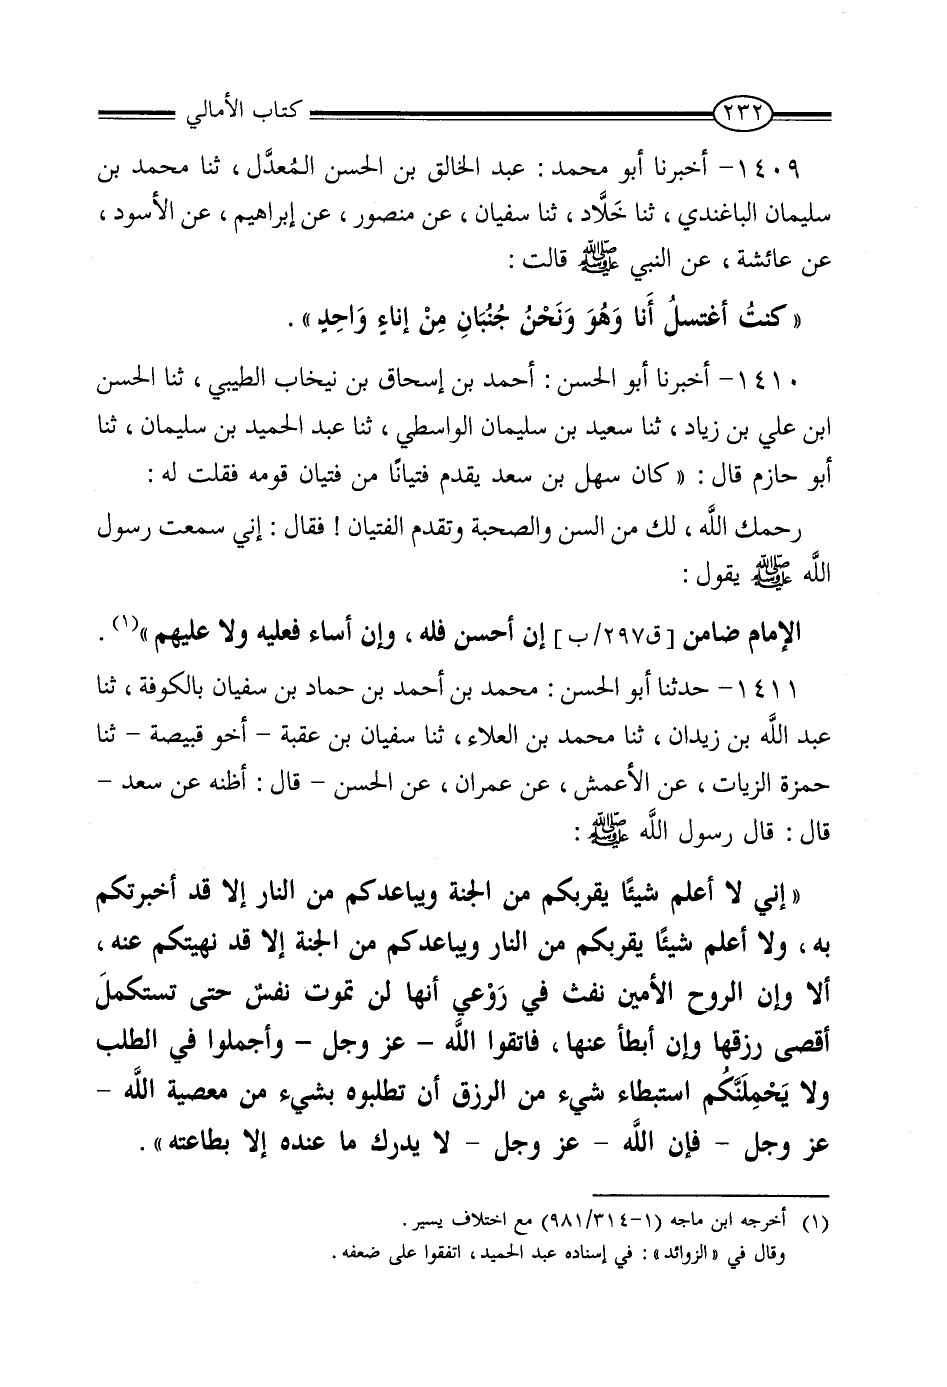 ٢٣٢ كتاب الأمالي
١٤٠٩- أخبرنا أبو محمد : عبد الخالق بن الحسن المُعدَّل ، ثنا محمد بن
سليمان الباغندي ، ثنا خَلَّاد ، ثنا سفيان ، عن منصور ، عن إبراهيم ، عن الأسود ،
عن عائشة ، عن النبي ﷺ قالت :
« كنتُ أغتسلُ أَنا وَهُوَ وَنَحْنُ جُنُبَانِ مِنْ إناءٍ وَاحِدٍ » .
١٤١٠- أخبرنا أبو الحسن : أحمد بن إسحاق بن نيخاب الطيبي ، ثنا الحسن
ابن علي بن زياد ، ثنا سعيد بن سليمان الواسطي ، ثنا عبد الحميد بن سليمان ، ثنا
أبو حازم قال : « كان سهل بن سعد يقدم فتيانًا من فتيان قومه فقلت له :
رحمك اللَّه ، لك من السن والصحبة وتقدم الفتيان ! فقال : إني سمعت رسول
اللَّه ﷺ يقول :
الإمام ضامن [ ق٢٩٧/ب ] إن أحسن فله ، وإن أساء فعليه ولا عليهم »(١) .
١٤١١- حدثنا أبو الحسن : محمد بن أحمد بن حماد بن سفيان بالكوفة ، ثنا
عبد اللَّه بن زيدان ، ثنا محمد بن العلاء ، ثنا سفيان بن عقبة – أخو قبيصة – ثنا
حمزة الزيات ، عن الأعمش ، عن عمران ، عن الحسن – قال : أظنه عن سعد –
قال : قال رسول اللَّه ﷺ :
« إني لا أعلم شيئًا يقربكم من الجنة ويباعدكم من النار إلا قد أخبرتكم
به ، ولا أعلم شيئًا يقربكم من النار ويباعدكم من الجنة إلا قد نهيتكم عنه ،
ألا وإن الروح الأمين نفث في رَوْعي أنها لن تموت نفسٌ حتى تستكملَ
أقصى رزقها وإن أبطأ عنها ، فاتقوا اللَّه – عز وجل – وأجملوا في الطلب
ولا يَحْمِلَنَّكُم استبطاء شيء من الرزق أن تطلبوه بشيء من معصية اللَّه –
عز وجل – فإن اللَّه – عز وجل – لا يدرك ما عنده إلا بطاعته » .
(١) أخرجه ابن ماجه (١-٩٨١/٣١٤) مع اختلاف يسير .
وقال في « الزوائد » : في إسناده عبد الحميد ، اتفقوا على ضعفه .